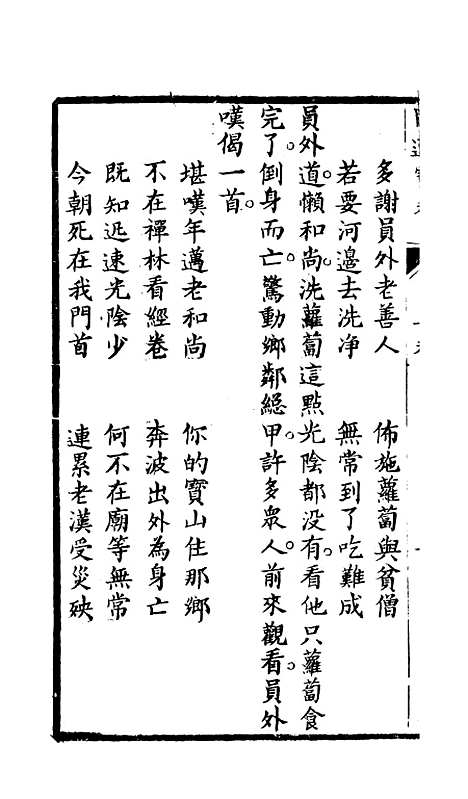 多謝員外老善人　佈施蘿蔔與貧僧
若要河邊去洗净　無常到了吃難成
員外道懶和尚洗蘿蔔這點光陰都没有。看他只蘿蔔食
完了。倒身而亡。驚動鄉鄰總甲許多眾人。前來觀看。員外
嘆偈一首。
堪嘆年邁老和尚　你的寶山住那鄉
不在禪林看經卷　奔波出外為身亡
既知迅速光陰少　何不在廟等無常
今朝死在我門首　連累老漢受災殃